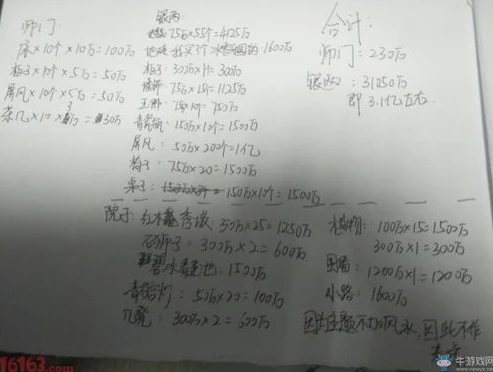 师门:
床×10个×10万=100万
椅子×10个×5万=50万
屏风×10个×5万=50万
茶几×10×3万=30万
银两
75万×55个=4125万
1600万
椅子:300万×1=300万
75万×15=1125万
75×10=750万
150万×10个=1500万
屏风:50万×200个=1亿
椅子:75万×20=1500万
桌子:150万×10个=1500万
合计:
师门:230万
银两:31050万
即3.1亿左右.
院子:
50万×25=1250万
石狮子:300万×2=600万
碧水莲池:1500万
青石灯:50万×20=100万
300万×2=600万
植物:100万×15=1500万
300万×1=300万
围墙:1200万×1=1200万
小路:1600万
因为主题不加风水,因此不作
考虑
16163.com
牛游戏网